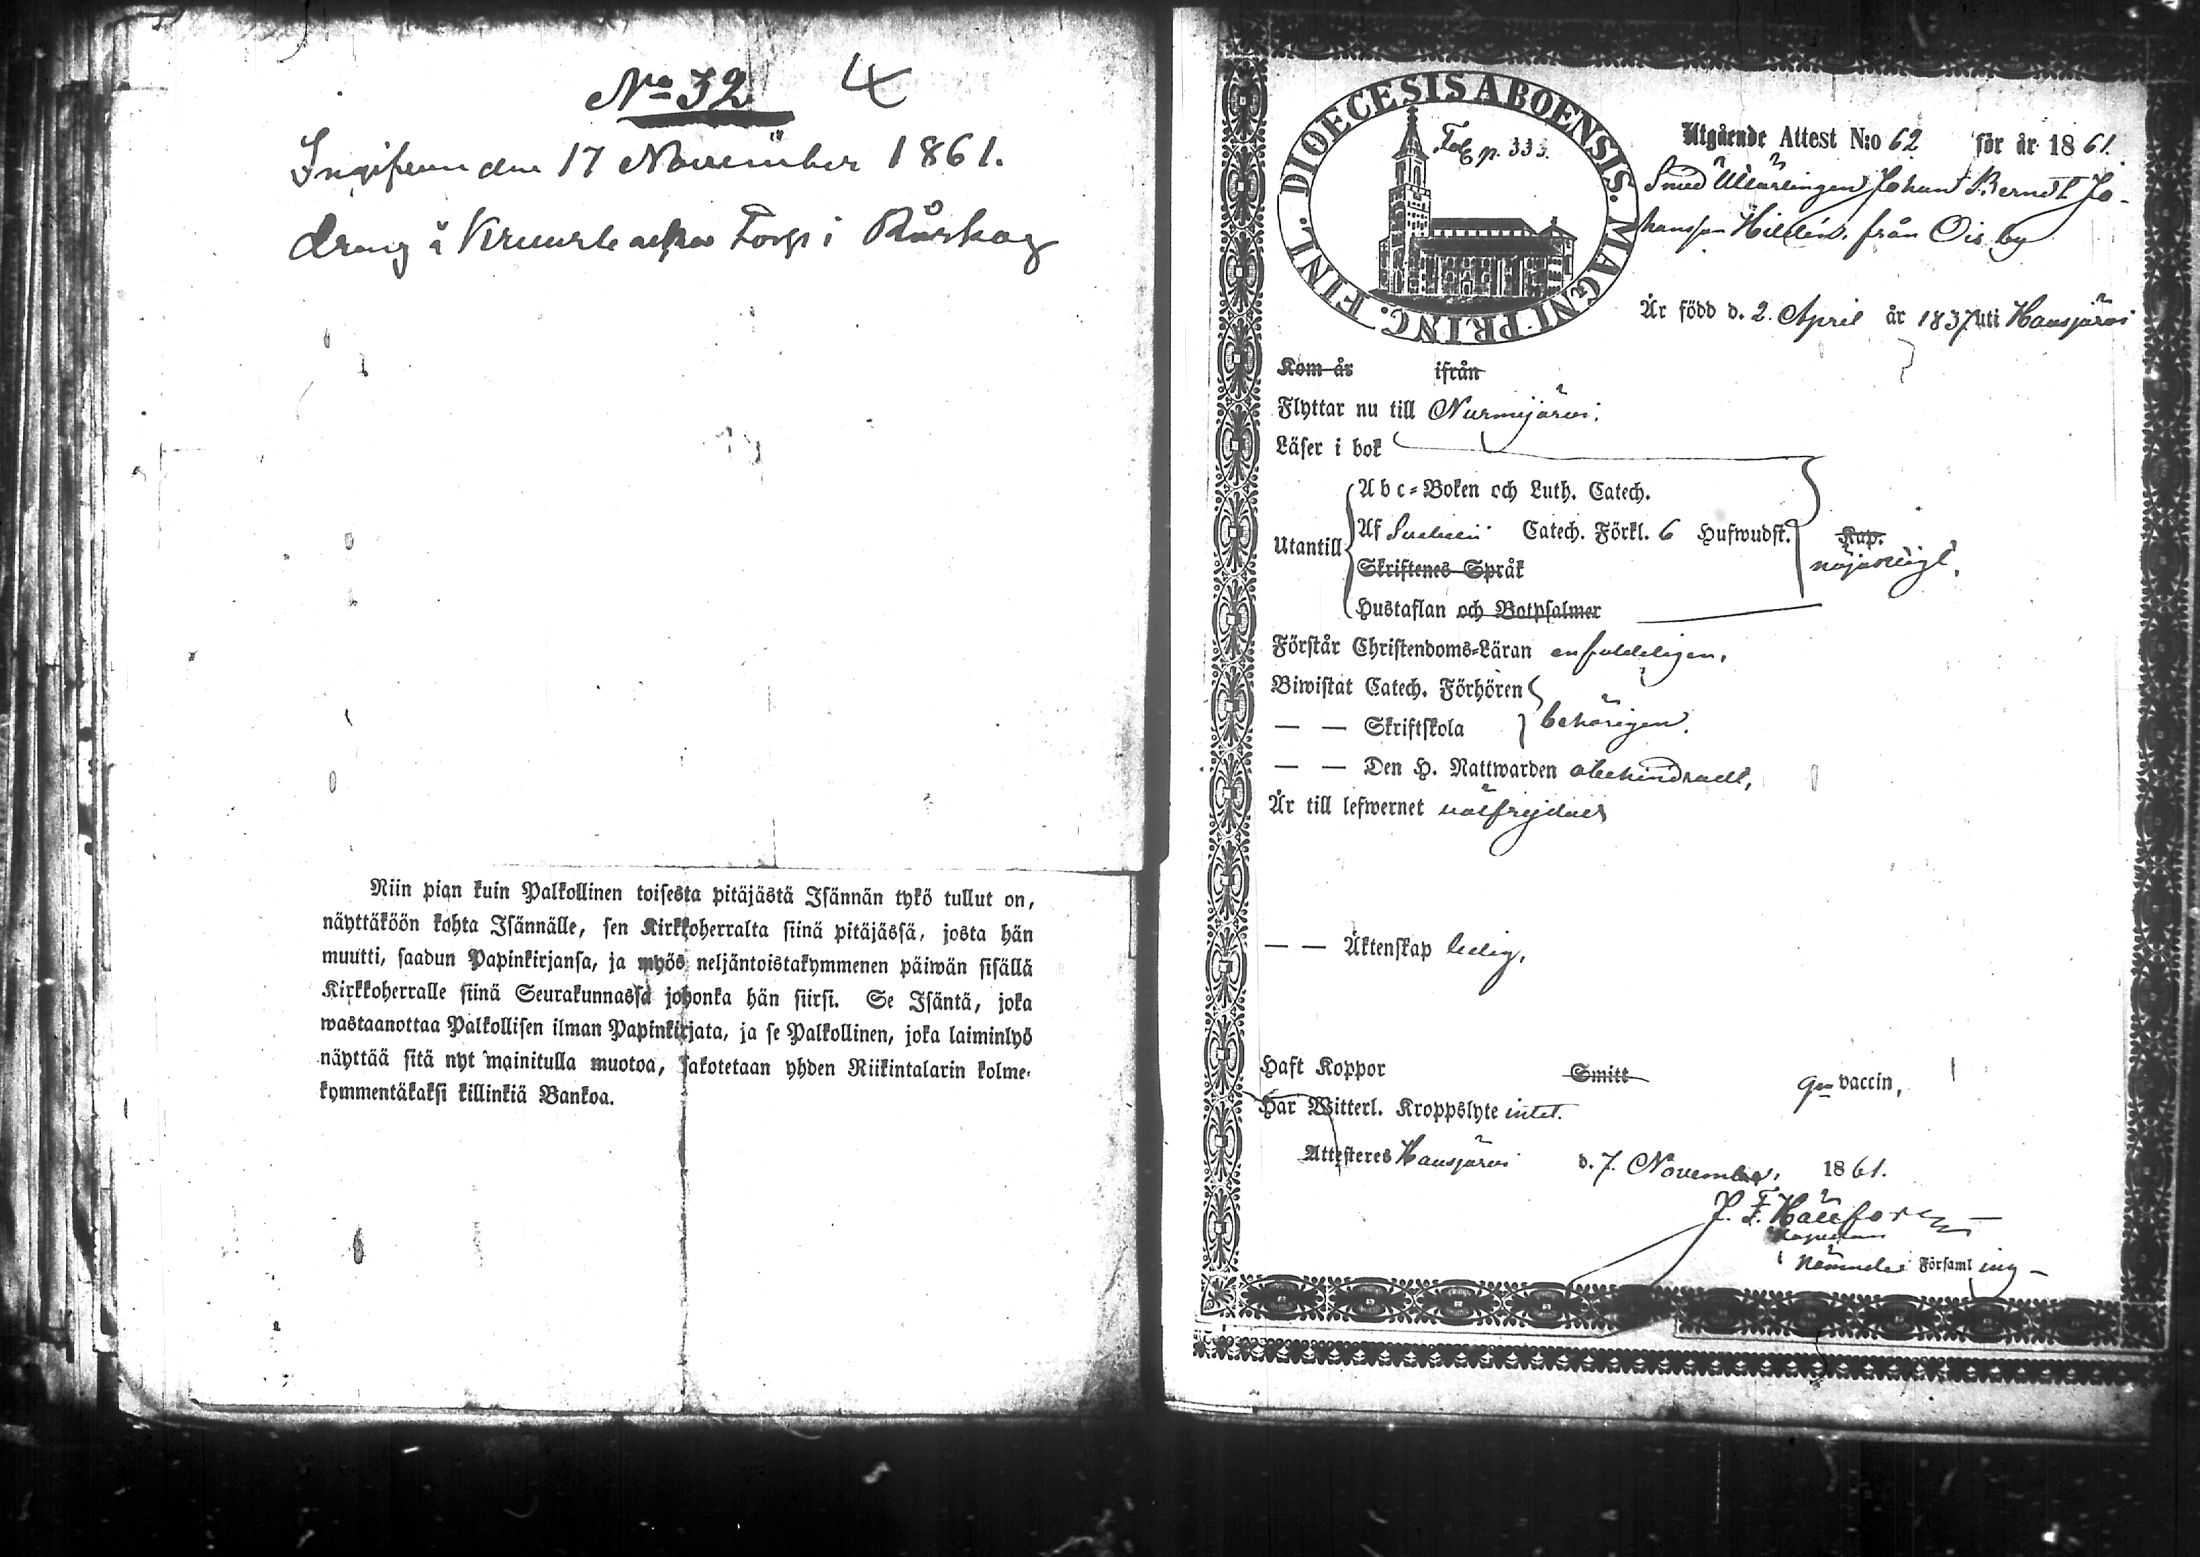 No 32 4
Ingifven den 17 November 1861.
dräng å Torp i Råskog
Niin pian kuin Palkollinen toisesta pitäjästä Isännän tykö tullut on,
näyttäköön kohta Isännälle, sen Kirkkoherralta siinä pitäjässä, josta hän
muutti, saadun Papinkirjansa, ja myös neljäntoistakymmenen päiwän sisällä
Kirkkoherralle siinä Seurakunnassa johonka hän siirsi. Se Isäntä, joka
wastaanottaa Palkollisen ilman Papinkirjata, ja se Palkollinen, joka laiminlyö
näyttää sitä nyt mainitulla muotoa, sakotetaan yhden Riikintalarin kolme-
kymmentäkaksi killinkiä Bankoa.
DIOECESIS ABOENSIS. MAGNI PRINC. FINL.
p. 333.
Utgående Attest N:o 62 för år 1861.
Smed Johan Berndt Jo-
hansson Hillén, från Ois by
Är född d. 2. April år 1837 uti Hausjärvi
Kom år ifrån
Flyttar nu till Nurmijärvi.
Läser i bok
Utantill
Abc-Boken och Luth. Catech.
Af Catech. Förkl. 6 Hufwudst. Kap.
nöjaktigt.
Skriftenes Språk
Hustaflan och Botpsalmer
Förstår Christendoms-Läran enfaldeligen,
Biwistat Catech. Förhören
— — Skriftskola behörigen.
— — Den H. Nattwarden obehindradt,
Är till lefwernet välfrejdad
— — Äktenskap ledig,
Haft Koppor Smitt gm vaccin,
Har Witterl. Kroppslyte intet.
Attesteres Hausjärvi d. 7. November 1861.
Kapellan
i Nämnde Församling